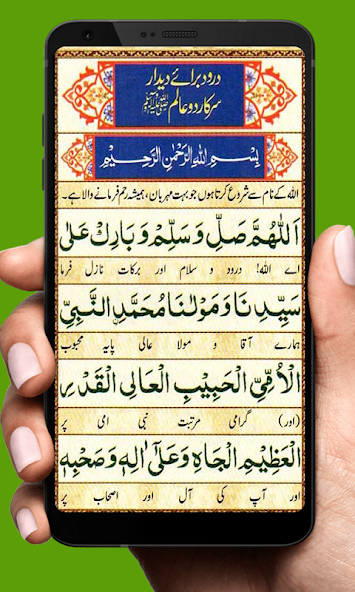 درود برائے دیدار
سرکار دو عالم ﷺ
بِسْمِ اللهِ الرَّحْمٰنِ الرَّحِيْمِ
اللہ کے نام سے شروع کرتا ہوں جو بہت مہربان، ہمیشہ رحم فرمانے والا ہے۔
اَللّٰهُمَّ صَلِّ وَسَلِّمْ وَبَارِكْ عَلٰى
اے اللہ! درود و سلام اور برکات نازل فرما
سَيِّدِنَا وَمَوْلٰنَا مُحَمَّدِ النَّبِيِّ
ہمارے آقا و مولا عالی پایہ محبوب
الْاُمِّيِّ الْحَبِيْبِ الْعَالِى الْقَدْرِ
(اور) گرامی مرتبت نبی امی پر
الْعَظِيْمِ الْجَاهِ وَعَلٰٓى اٰلِهٖ وَصَحْبِهٖ
اور آپ کی آل اور اصحاب پر